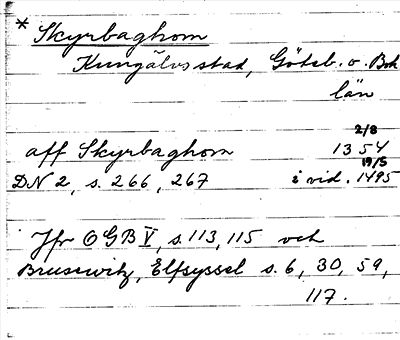 * Skyrbaghom
Kungälvs stad, Göteb. o. Boh
län
2/8
aff Skyrbaghom 1354
19/5
DN 2, s. 266, 267 i vid. 1495
Jfr OGB V, s. 113, 115 och
Brusewitz, Elfsyssel s. 6, 30, 59,
117.